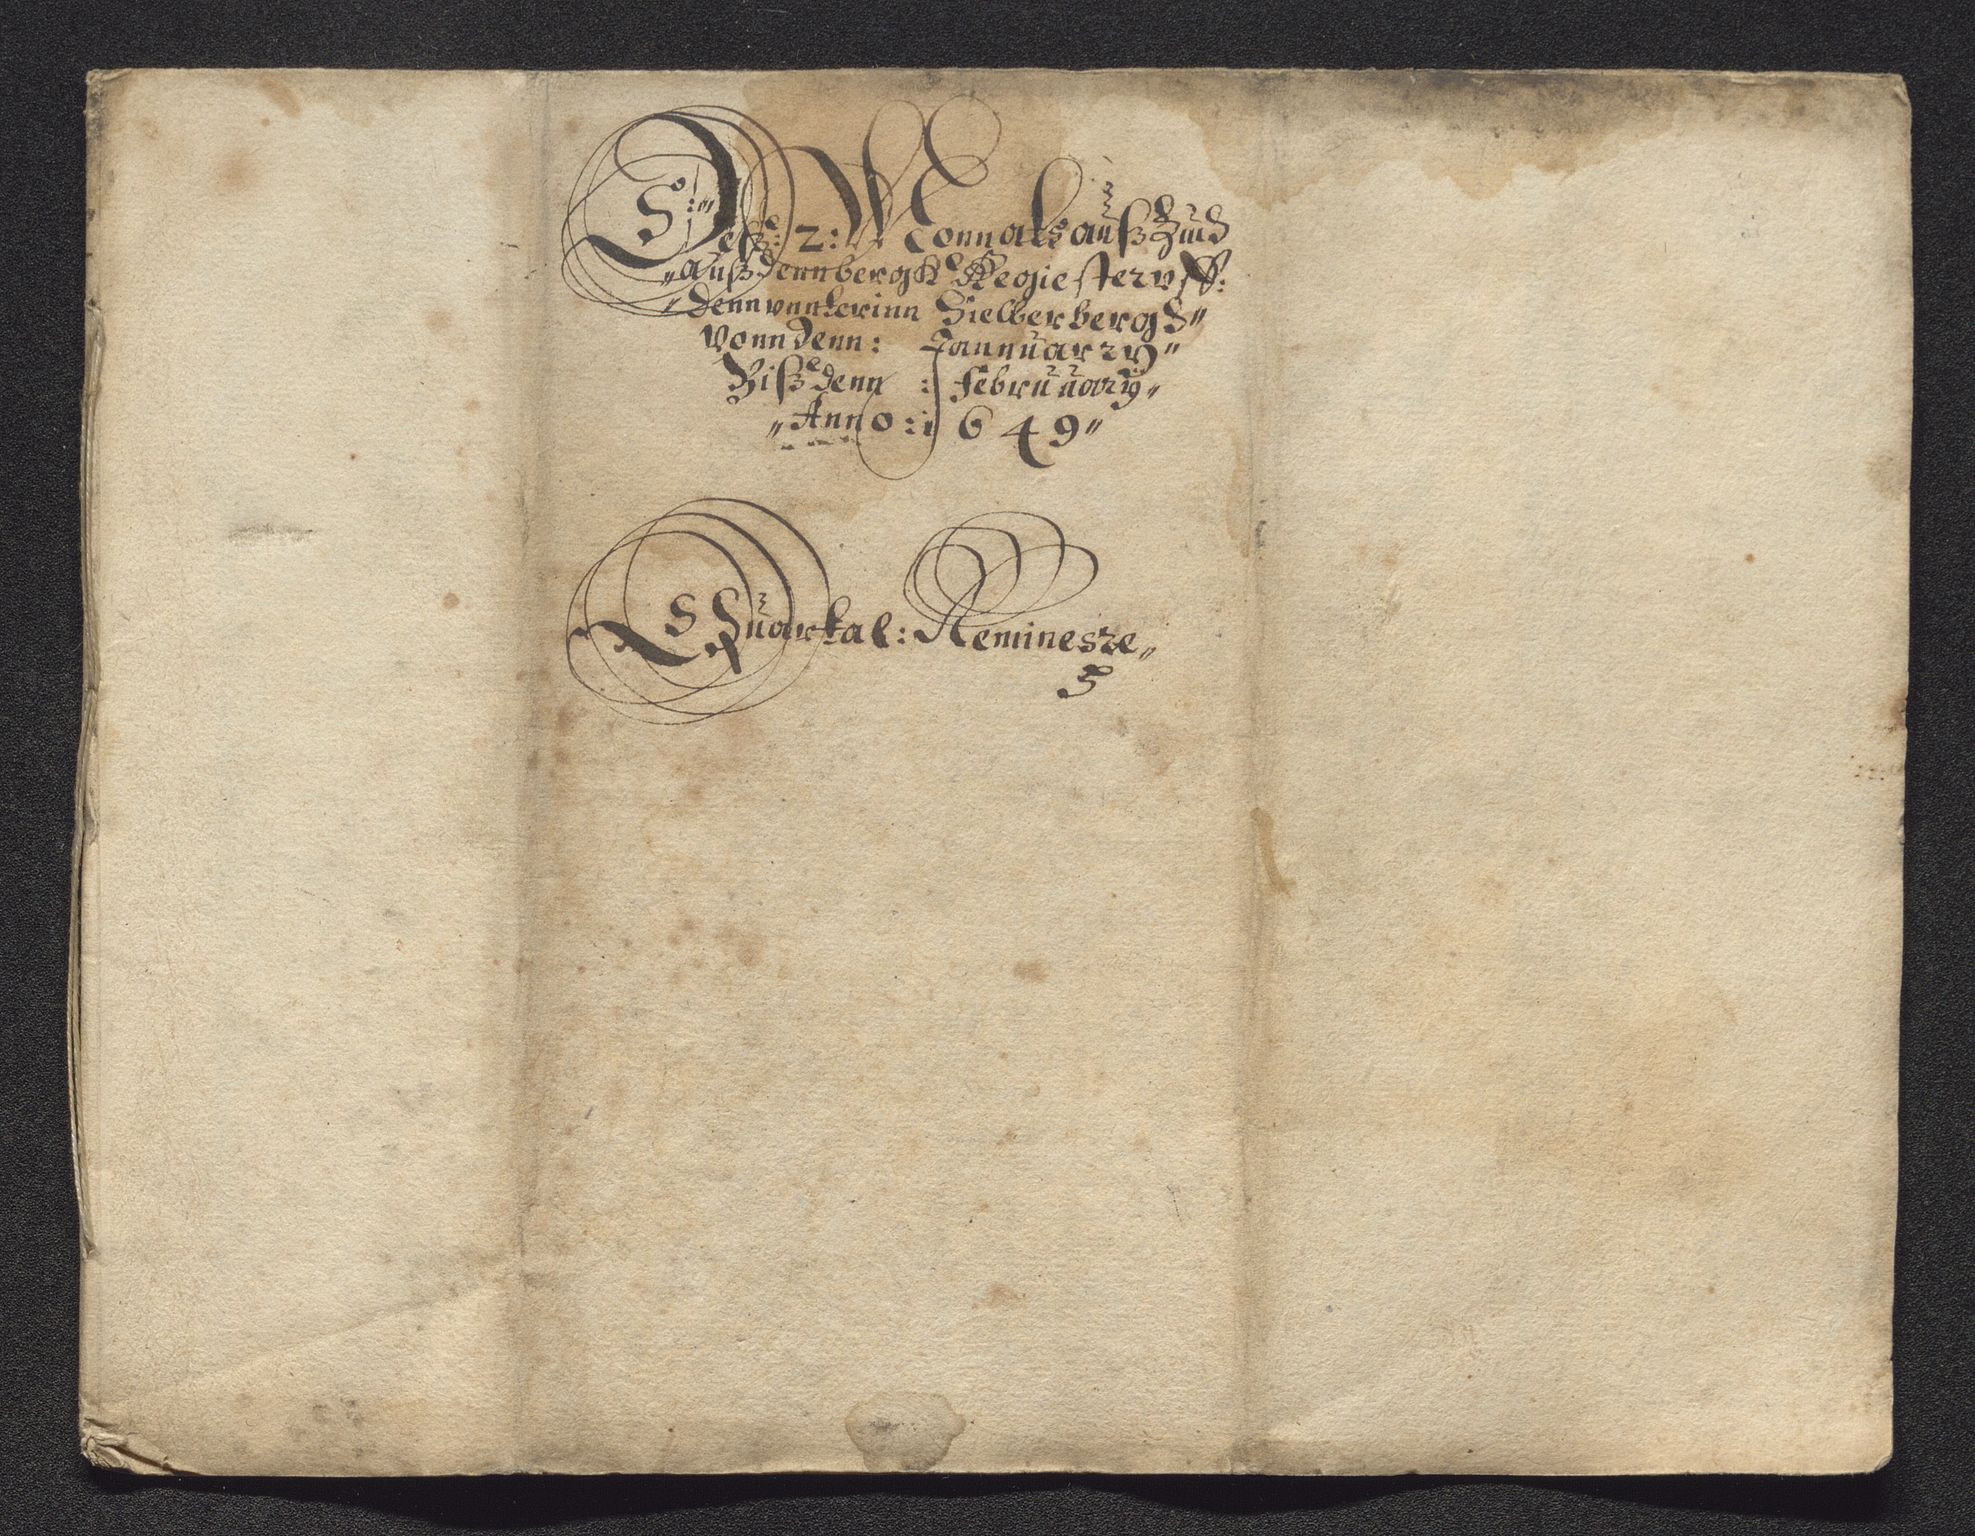 Deß: 2: Monnats außZuch
auß denn bergk Regiester vff:
denn vntterinn Sielberberg
vonn denn: Jannuarzy
Biß denn: Februuary
Anno: 1649
Quartal: Reminesze